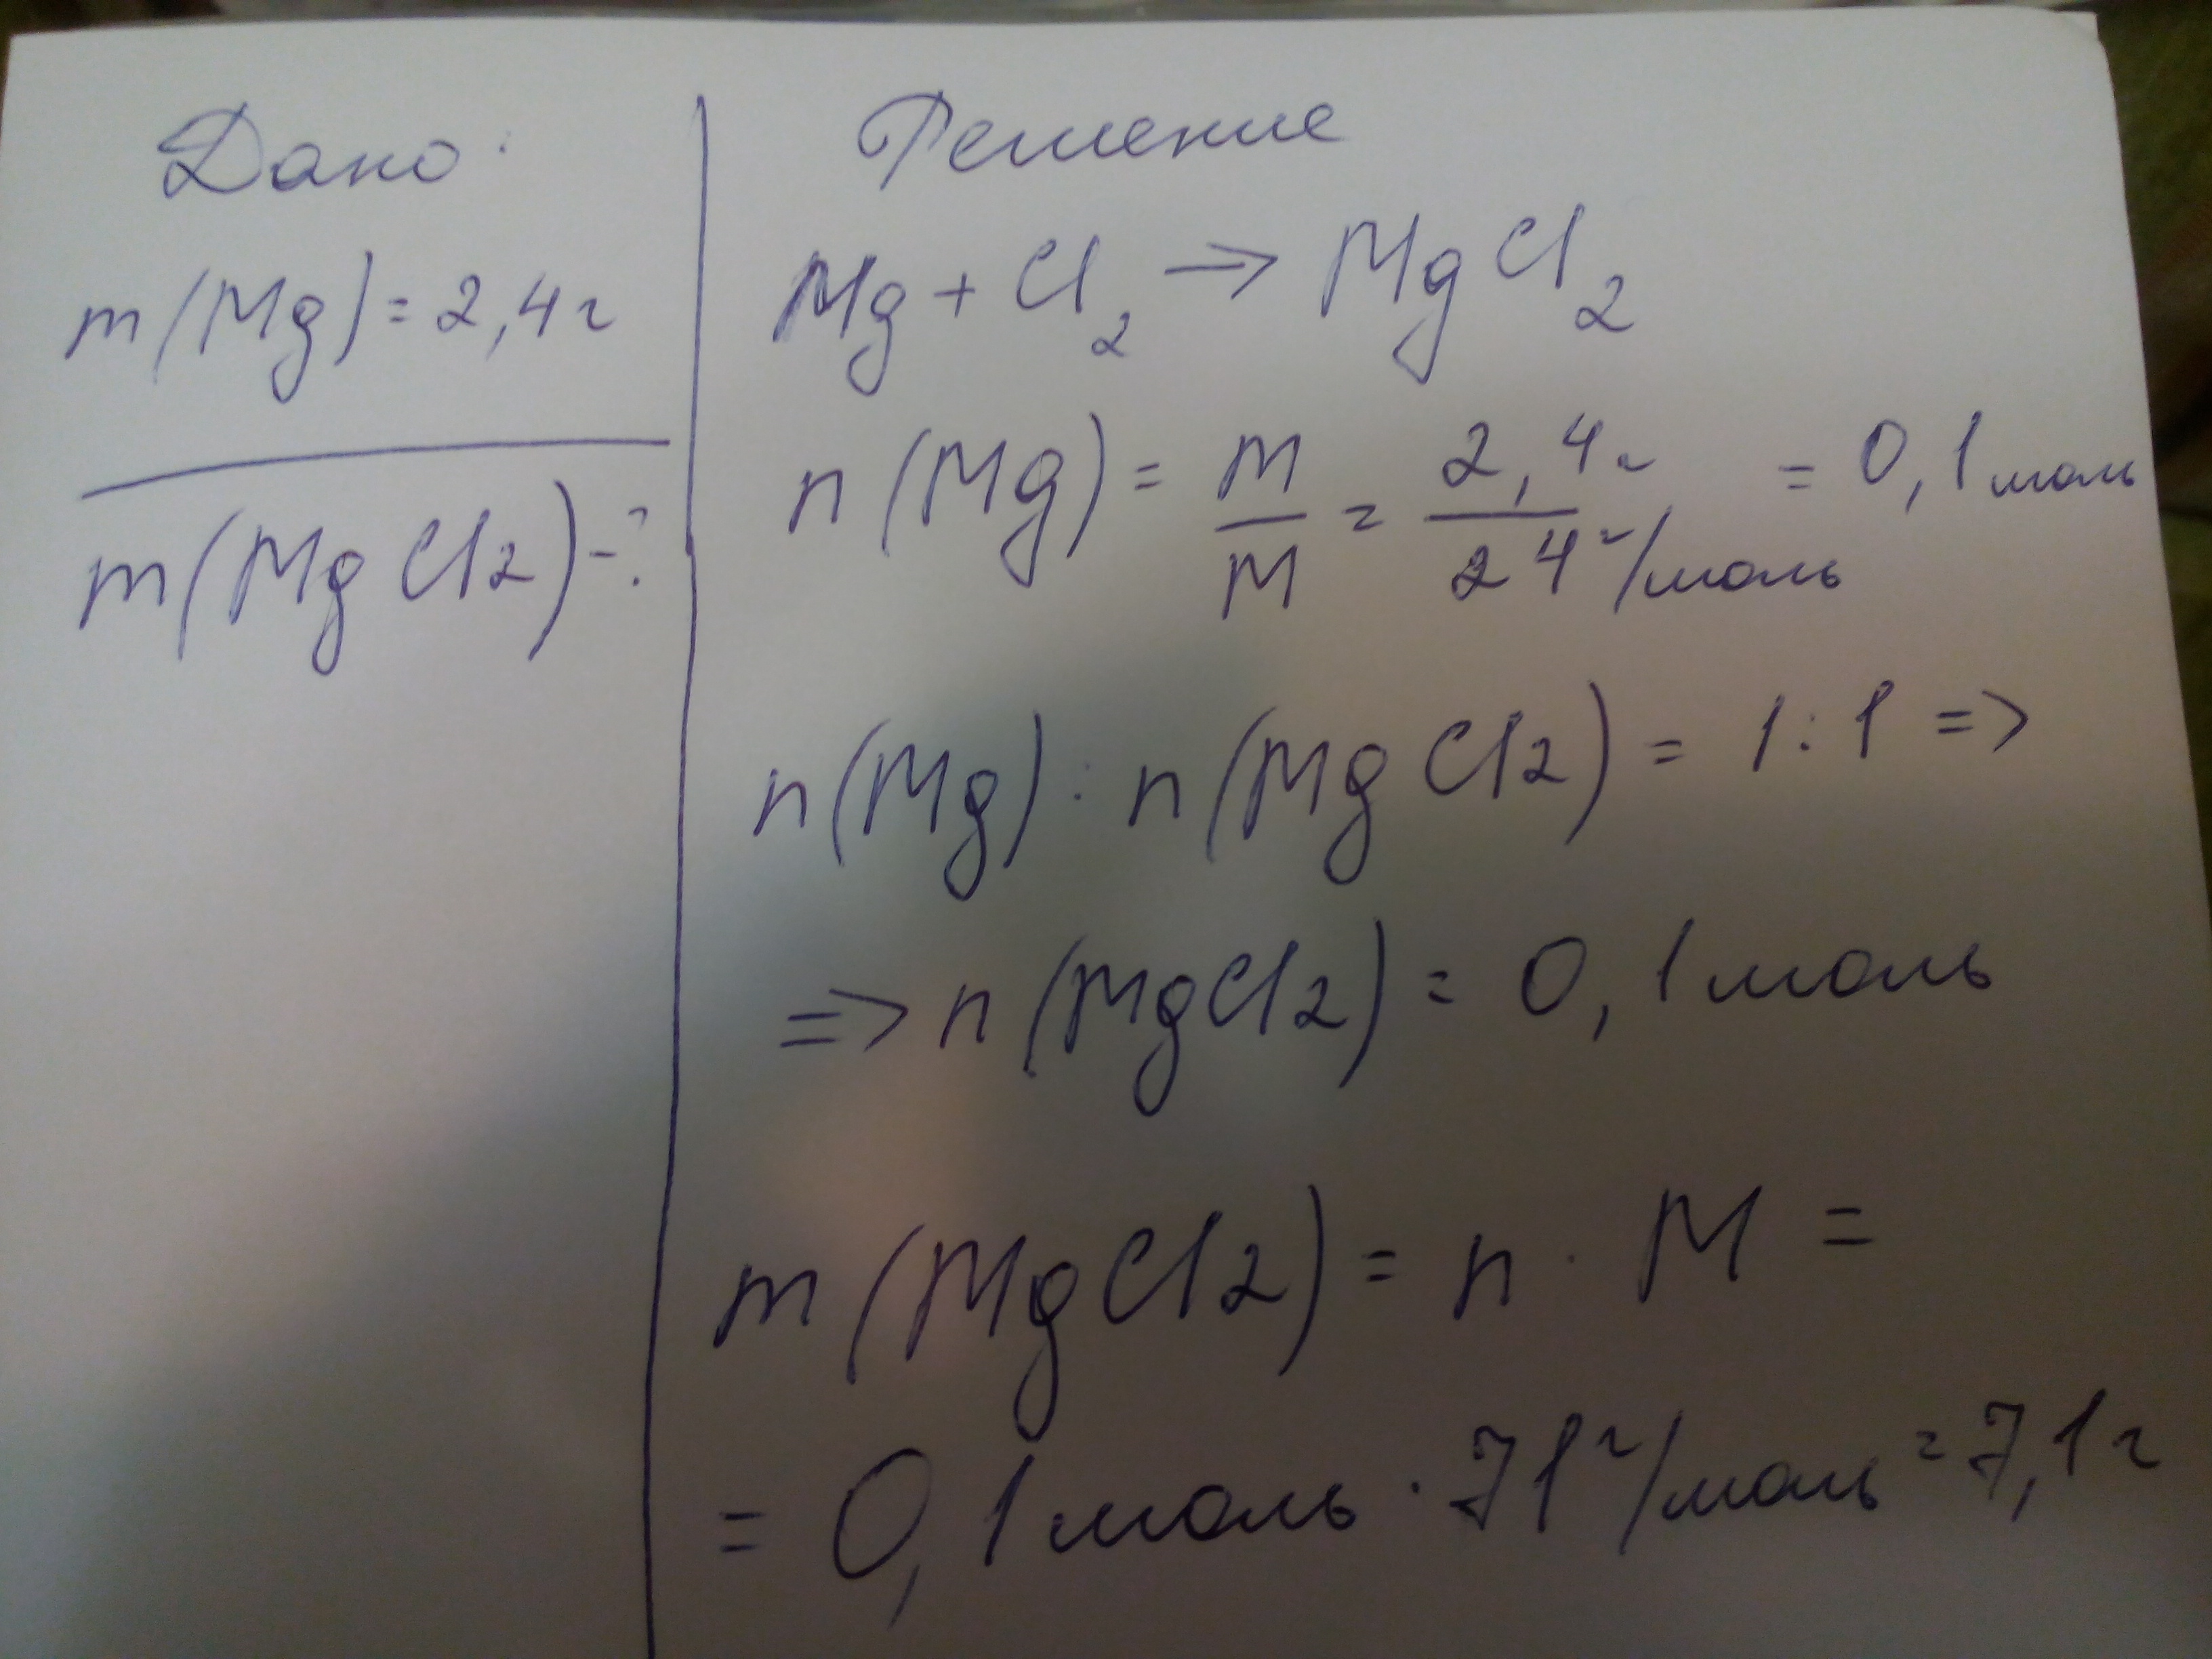 Дано:
m(Mg)=2,4г
m(MgCl2)-?
Решение
Mg+Cl2→MgCl2
n(Mg)=m/M=2,4г/24г/моль=0,1моль
n(Mg):n(MgCl2)=1:1=>
=>n(MgCl2)=0,1моль
m(MgCl2)=n·M=
=0,1моль·71г/моль=7,1г